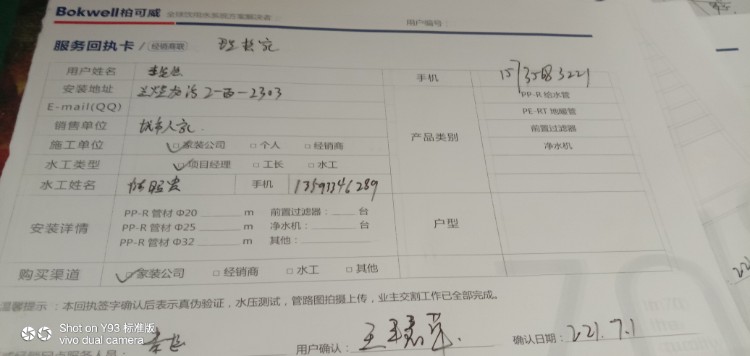 Bokwell柏可威 全球饮用水系统方案解决者
用户编号：
服务回执卡 / 经销商联
用户姓名 手机
安装地址 2-西-2303 PP-R 给水管
E-mail(QQ) PE-RT 地暖管
销售单位 城市人家 产品类别 前置过滤器
施工单位 ☑家装公司 □个人 □经销商 净水机
水工类型 ☑项目经理 □工长 □水工
水工姓名 手机 13593346289
安装详情 PP-R 管材 Φ20 m 前置过滤器： 台 户型
PP-R 管材 Φ25 m 净水机： 台
PP-R 管材 Φ32 m 其他：
购买渠道 ☑家装公司 □经销商 □水工 □其他
温馨提示：本回执签字确认后表示真伪验证，水压测试，管路图拍摄上传，业主交割工作已全部完成。
用户确认： 确认日期：221.7.1
服务人员：
Shot on Y93 标准版
vivo dual camera